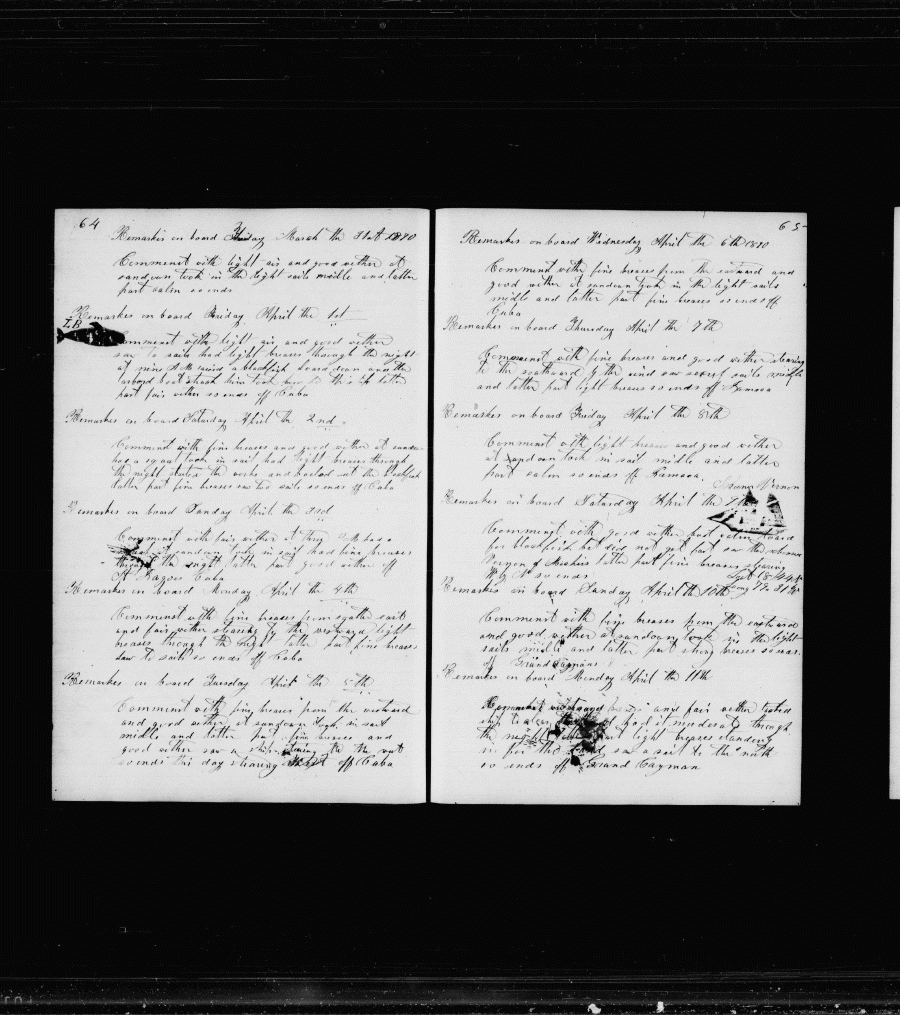 64
Remarkes on board Friday March the 31st 1870
Comminct with light air and good wether at
sandown took in the light sails middle and latter
part calm so ends
Remarkes on board Friday April the 1st
I.B
Comminct with light air and good wether
saw to sails had light breases through the night
at nine A M raised a blackfish board down and the
larbord boat struck him took him to the ship latter
part fair wether so ends off Cuba
Remarkes on board Saturday April the 2nd
Comminct with fine breases and good wether at
had a squal took in sail had light breases through
the night started the works and the blackfish
latter part fine breases saw two sails so ends off Cuba
Remarkes on board Sunday April the 3rd
Comminct with fair wether at three P M had a
at sandown took in sail had fine breases
through the night latter part good wether off
Cuba
Remarkes on board Monday April the 4th
Comminct with fine breases from
and fair wether stearing to the westward light
breases through the night latter part fine breases
saw to sails so ends off Cuba
Remarkes on board Tuesday April the 5th
Comminct with fine breases from the eastward
and good wether at sandown took in sail
middle and latter part fine breases and
good wether saw a ship stearing to the
so ends this day stearing off Cuba
65
Remarkes on board Wednesday April the 6th 1870
Comminct with fine breases from the eastward and
good wether at sandown took in the light sails
midle and latter part fine breases so ends off
Cuba
Remarkes on board Thursday April the 7th
Comminct with fine breases and good wether stearing
to the southward of the saw sails midle
and latter part light breases so ends off Jamaca
Remarkes on board Friday April the 8th
Comminct with light breases and good wether
at sandown took in sail midle and latter
part calm so ends off Jamaca
Vernon
Remarkes on board Saturday April the 9th
Comminct with good wether but calm
for blackfish but did not get fast saw the
latter part fine breases stearing
so ends
Lat 18
Long 79
Remarkes on board Sunday April the 10th
Comminct with fine breases from the eastward
and good wether at sandown took in the light
sails midle and latter part strong breases so ends
off Grand Caymans
Remarkes on board Monday April the 11th
Comminct with and fair wether
ship had it moderate through
the night light breases standing
in for the saw a sail to the north
so ends off Grand Cayman